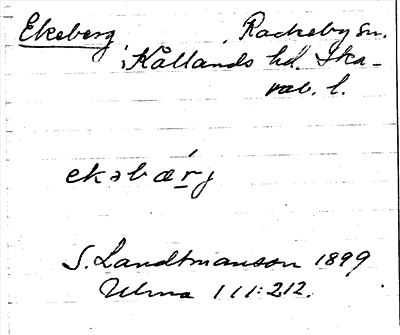 Ekeberg, Rackeby sn.
i Kållands hd. Ska-
rab. l.
ekəbærj
S. Landtmanson 1899
Ulma 111:212.